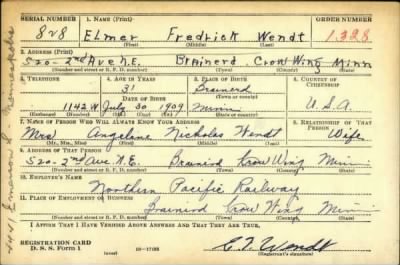 SERIAL NUMBER 1. NAME (Print) ORDER NUMBER
828 Elmer Fredrick Wendt 1328
(First) (Middle) (Last)
2. ADDRESS (Print)
520-2nd Ave N.E. Brainerd Crow Wing Minn
(Number and street or R. F. D. number) (Town) (County) (State)
3. TELEPHONE 4. AGE IN YEARS 5. PLACE OF BIRTH 6. COUNTRY OF CITIZENSHIP
31 Brainerd
DATE OF BIRTH (Town or county)
1142 W July 30 1909 Minn U.S.A.
(Exchange) (Number) (Mo.) (Day) (Yr.) (State or country)
7. NAME OF PERSON WHO WILL ALWAYS KNOW YOUR ADDRESS 8. RELATIONSHIP OF THAT PERSON
Mrs Angeline Nicholas Wendt Wife
(Mr., Mrs., Miss) (First) (Middle) (Last)
9. ADDRESS OF THAT PERSON
520-2nd Ave N.E. Brainerd Crow Wing Minn
(Number and street or R. F. D. number) (Town) (County) (State)
10. EMPLOYER'S NAME
Northern Pacific Railway
11. PLACE OF EMPLOYMENT OR BUSINESS
Brainerd Crow Wing Minn
(Number and street or R. F. D. number) (Town) (County) (State)
I AFFIRM THAT I HAVE VERIFIED ABOVE ANSWERS AND THAT THEY ARE TRUE.
REGISTRATION CARD
D. S. S. FORM 1 (over) 16-17105 Wendt
(Registrant's signature)